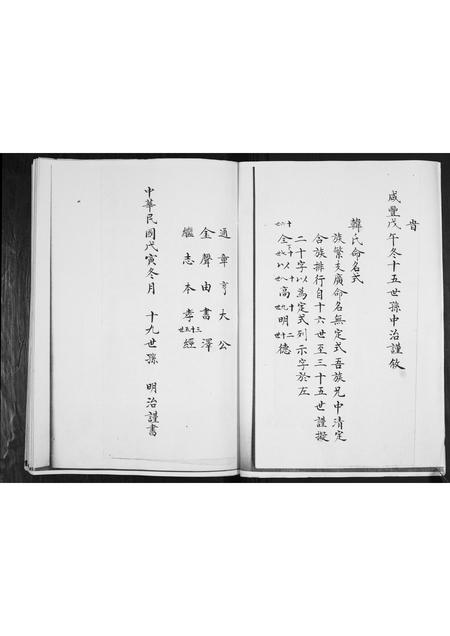 旹
咸豐戊午冬十五世孫中治謹敘
韓氏命名式
族繁支廣命名無定式吾族兄中清定
合族排行自十六世至三十五世謹擬
二十字以為定式列示字於左
十六世全十七世以十八世高十九世明二十世德
通章亨大公
金聲由書澤
繼志本孝三十五世經
中華民國戊寅冬月 十九世孫 明治謹書